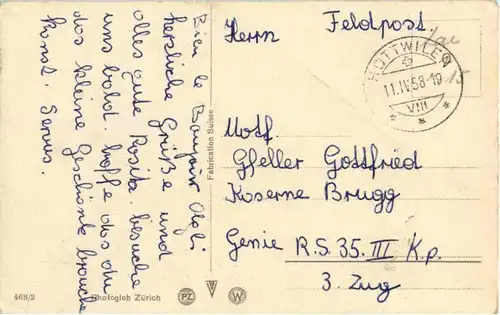 Bien le Bonjour Ogli
herzliche Grüße und
alles gute Rosita. besuche
uns bald. hoffe das du
das kleine Geschenk brauche
konst. Servus.
Fabrication Suisse
468/2
Photoglob Zürich
PZ
W
Feldpost.
Herrn
HÜTTWILEN
11.IV.58-19
VIII
Motf
Gfeller Gottfried
Kaserne Brugg
Genie R.S. 35. III Kp.
3. Zug